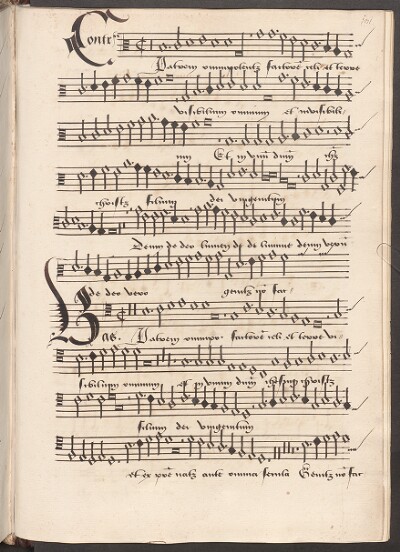 Contra
Patrem omnipotentz factorē celi et terre
visibilium omnium et invisibili-
um Et in vnū dnm̄ ihz
christz filium dei vnigenitum
Deum de deo lumen de lumine deum verū
de deo vero genitz nō fac-
Bas. Patrem omnipo- factorē celi et terre vi-
sibilium omnium et in vnum dnm̄ christz
filium dei vnigenitum
et ex pr̄e natz ante omnia secula Genitz nō fac